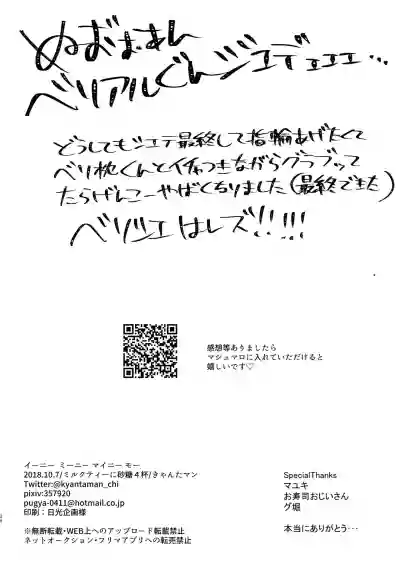 ぬぉぉぉあん
ベリアルぐんジエデェェェ…
どうしてもジエテ最終して指輪あげたくて
ベリ枕くんとイチャつきながらグラブって
たらげんこーやばくなりました(最終できた)
ベリジエはレズ!!!!!
感想等ありましたら
マシュマロに入れていただけると
嬉しいです♡
イーニー ミーニー マイニー モー
2018.10.7/ミルクティーに砂糖4杯/きゃんたマン
Twitter:@kyantaman_chi
pixiv:357920
pugya-0411@hotmail.co.jp
印刷：日光企画様
※無断転載・WEB上へのアップロード転載禁止
ネットオークション・フリマアプリへの転売禁止
SpecialThanks
マユキ
お寿司おじいさん
グ堀
本当にありがとう…